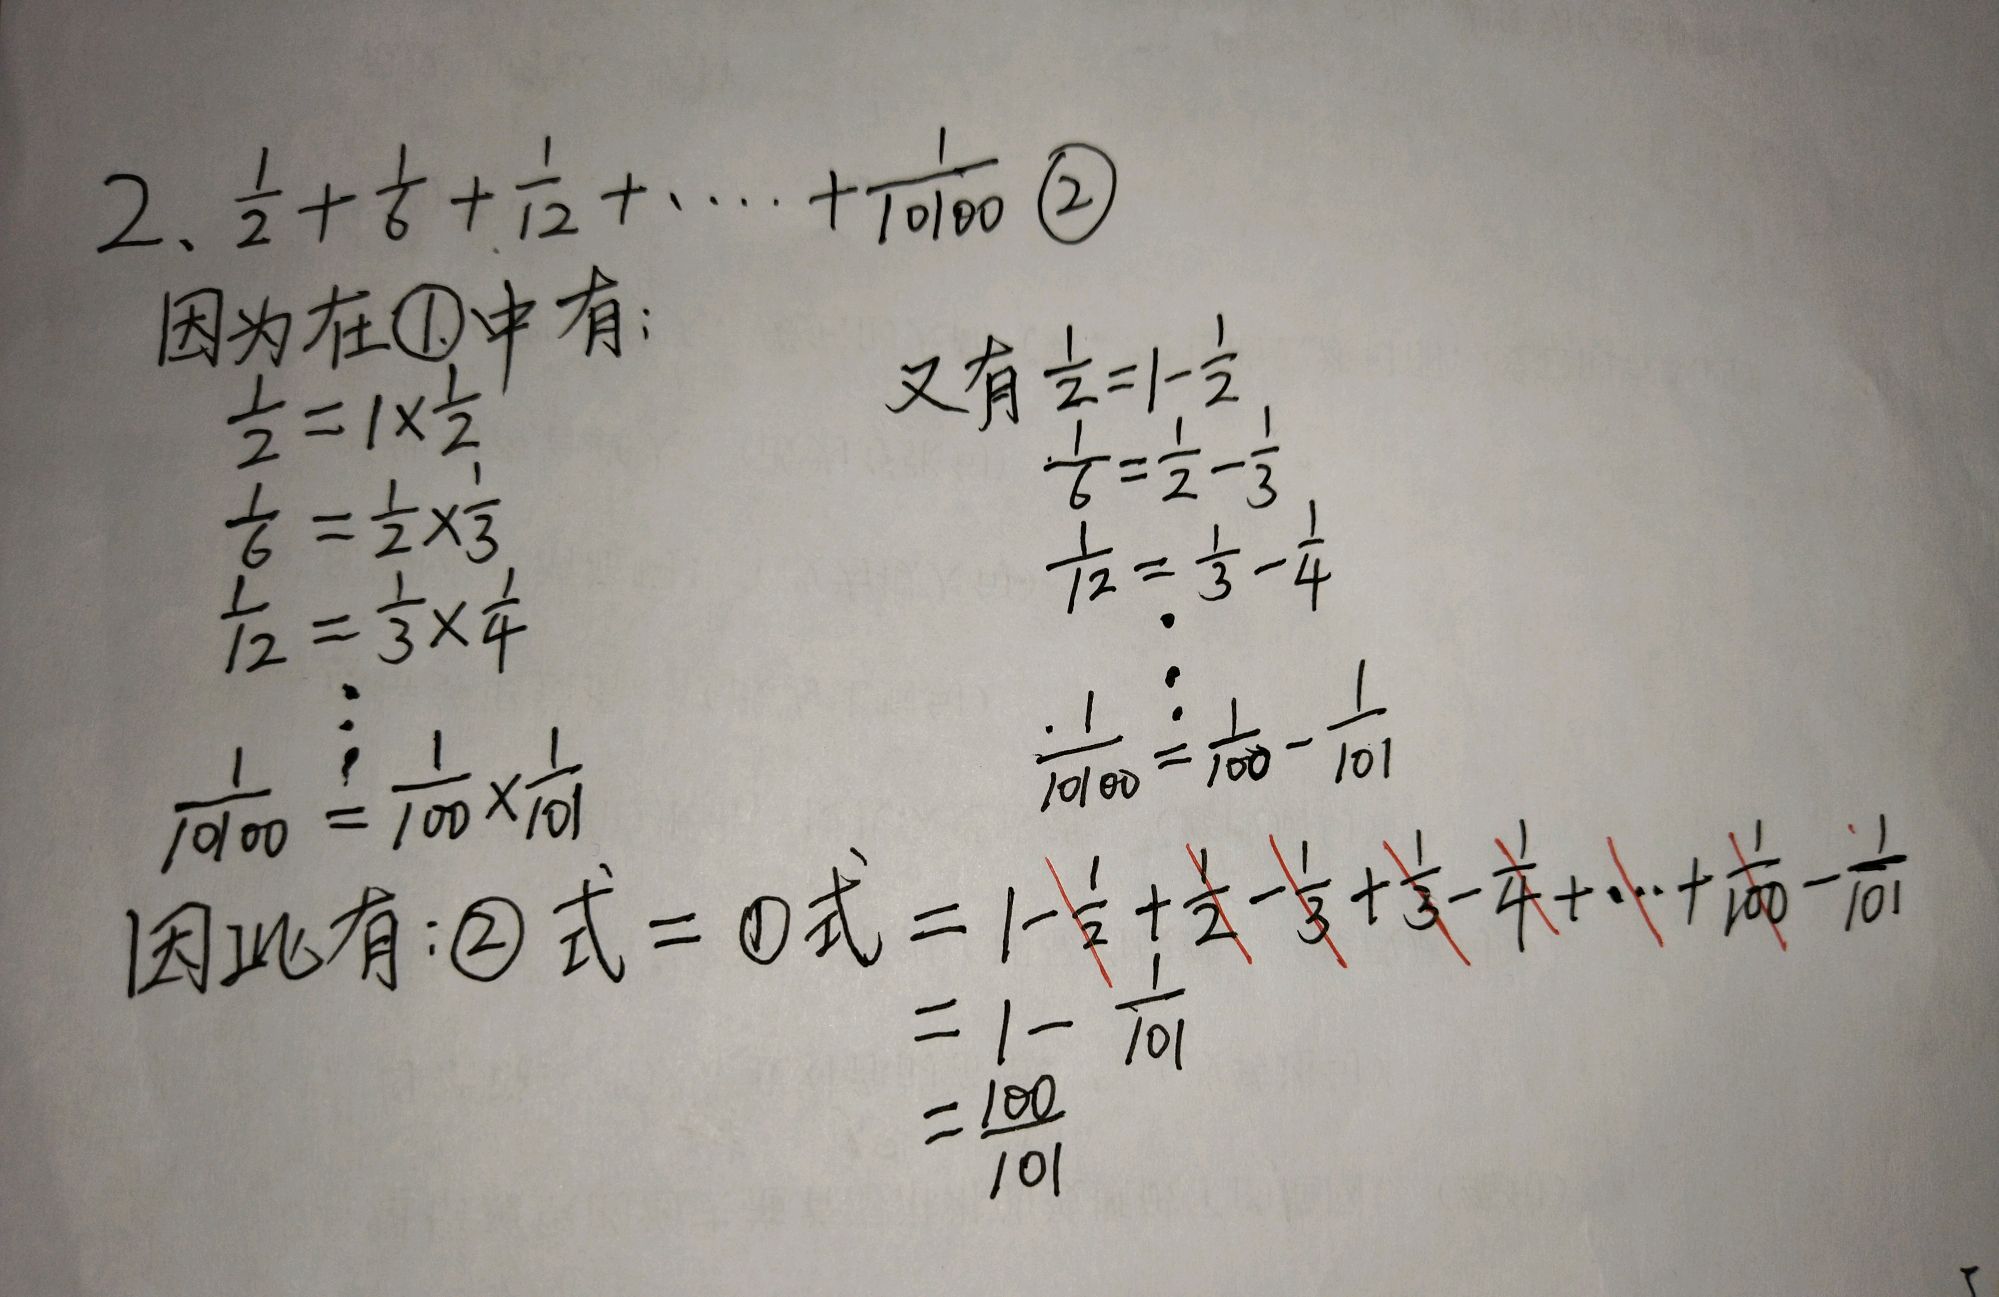 2、1/2 + 1/6 + 1/12 + ····· + 1/10100 ②
因为在①中有:
1/2 = 1 × 1/2
1/6 = 1/2 × 1/3
1/12 = 1/3 × 1/4
⋮
1/10100 = 1/100 × 1/101
又有 1/2 = 1 - 1/2
1/6 = 1/2 - 1/3
1/12 = 1/3 - 1/4
⋮
1/10100 = 1/100 - 1/101
因此有:②式 = ①式 = 1 - 1/2 + 1/2 - 1/3 + 1/3 - 1/4 + ··· + 1/100 - 1/101
= 1 - 1/101
= 100/101